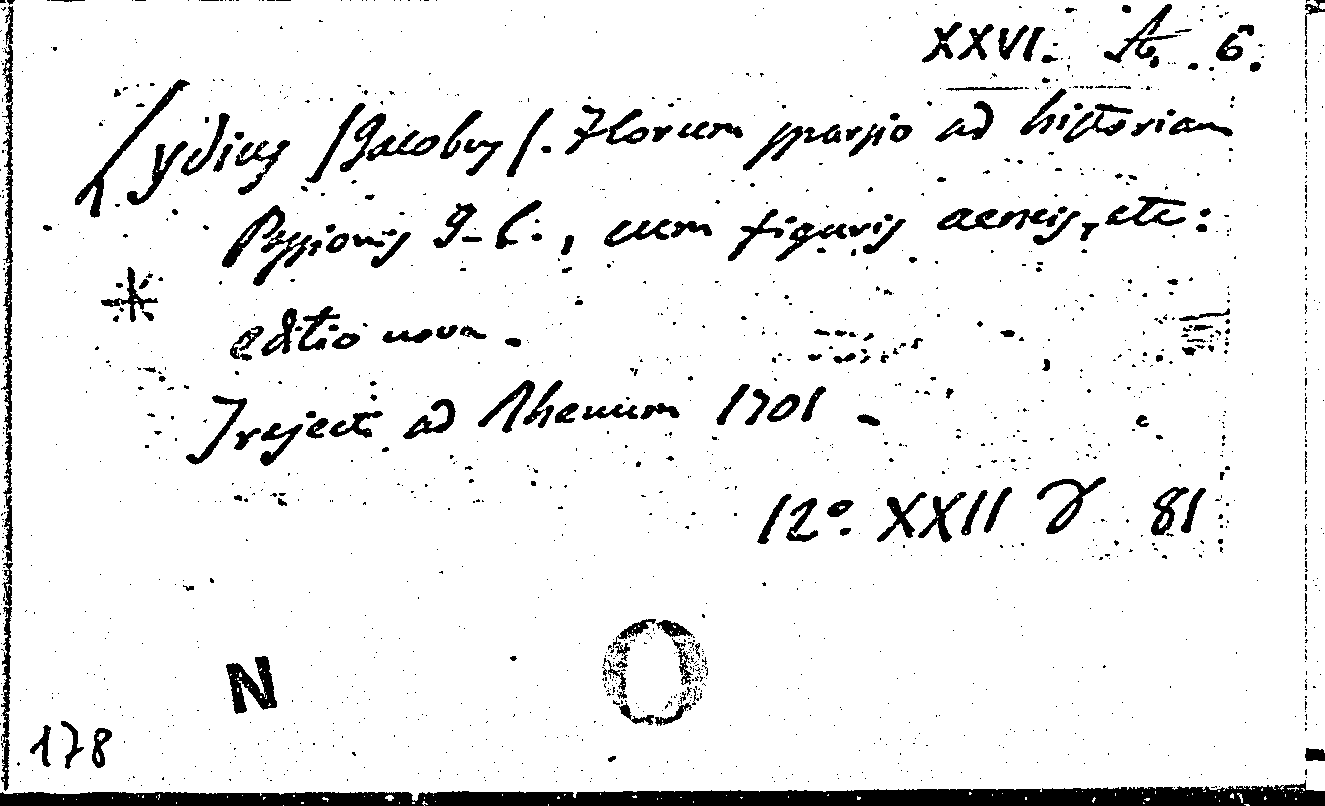 XXVI. A. 6.
Lydius /Jacobus/. Florum sparsio ad historiam
Passionis J-C., cum figuris aeneis, etc:
editio nova.
Trajecti ad Rhenum 1701.
12°. XXII γ 81
N
178